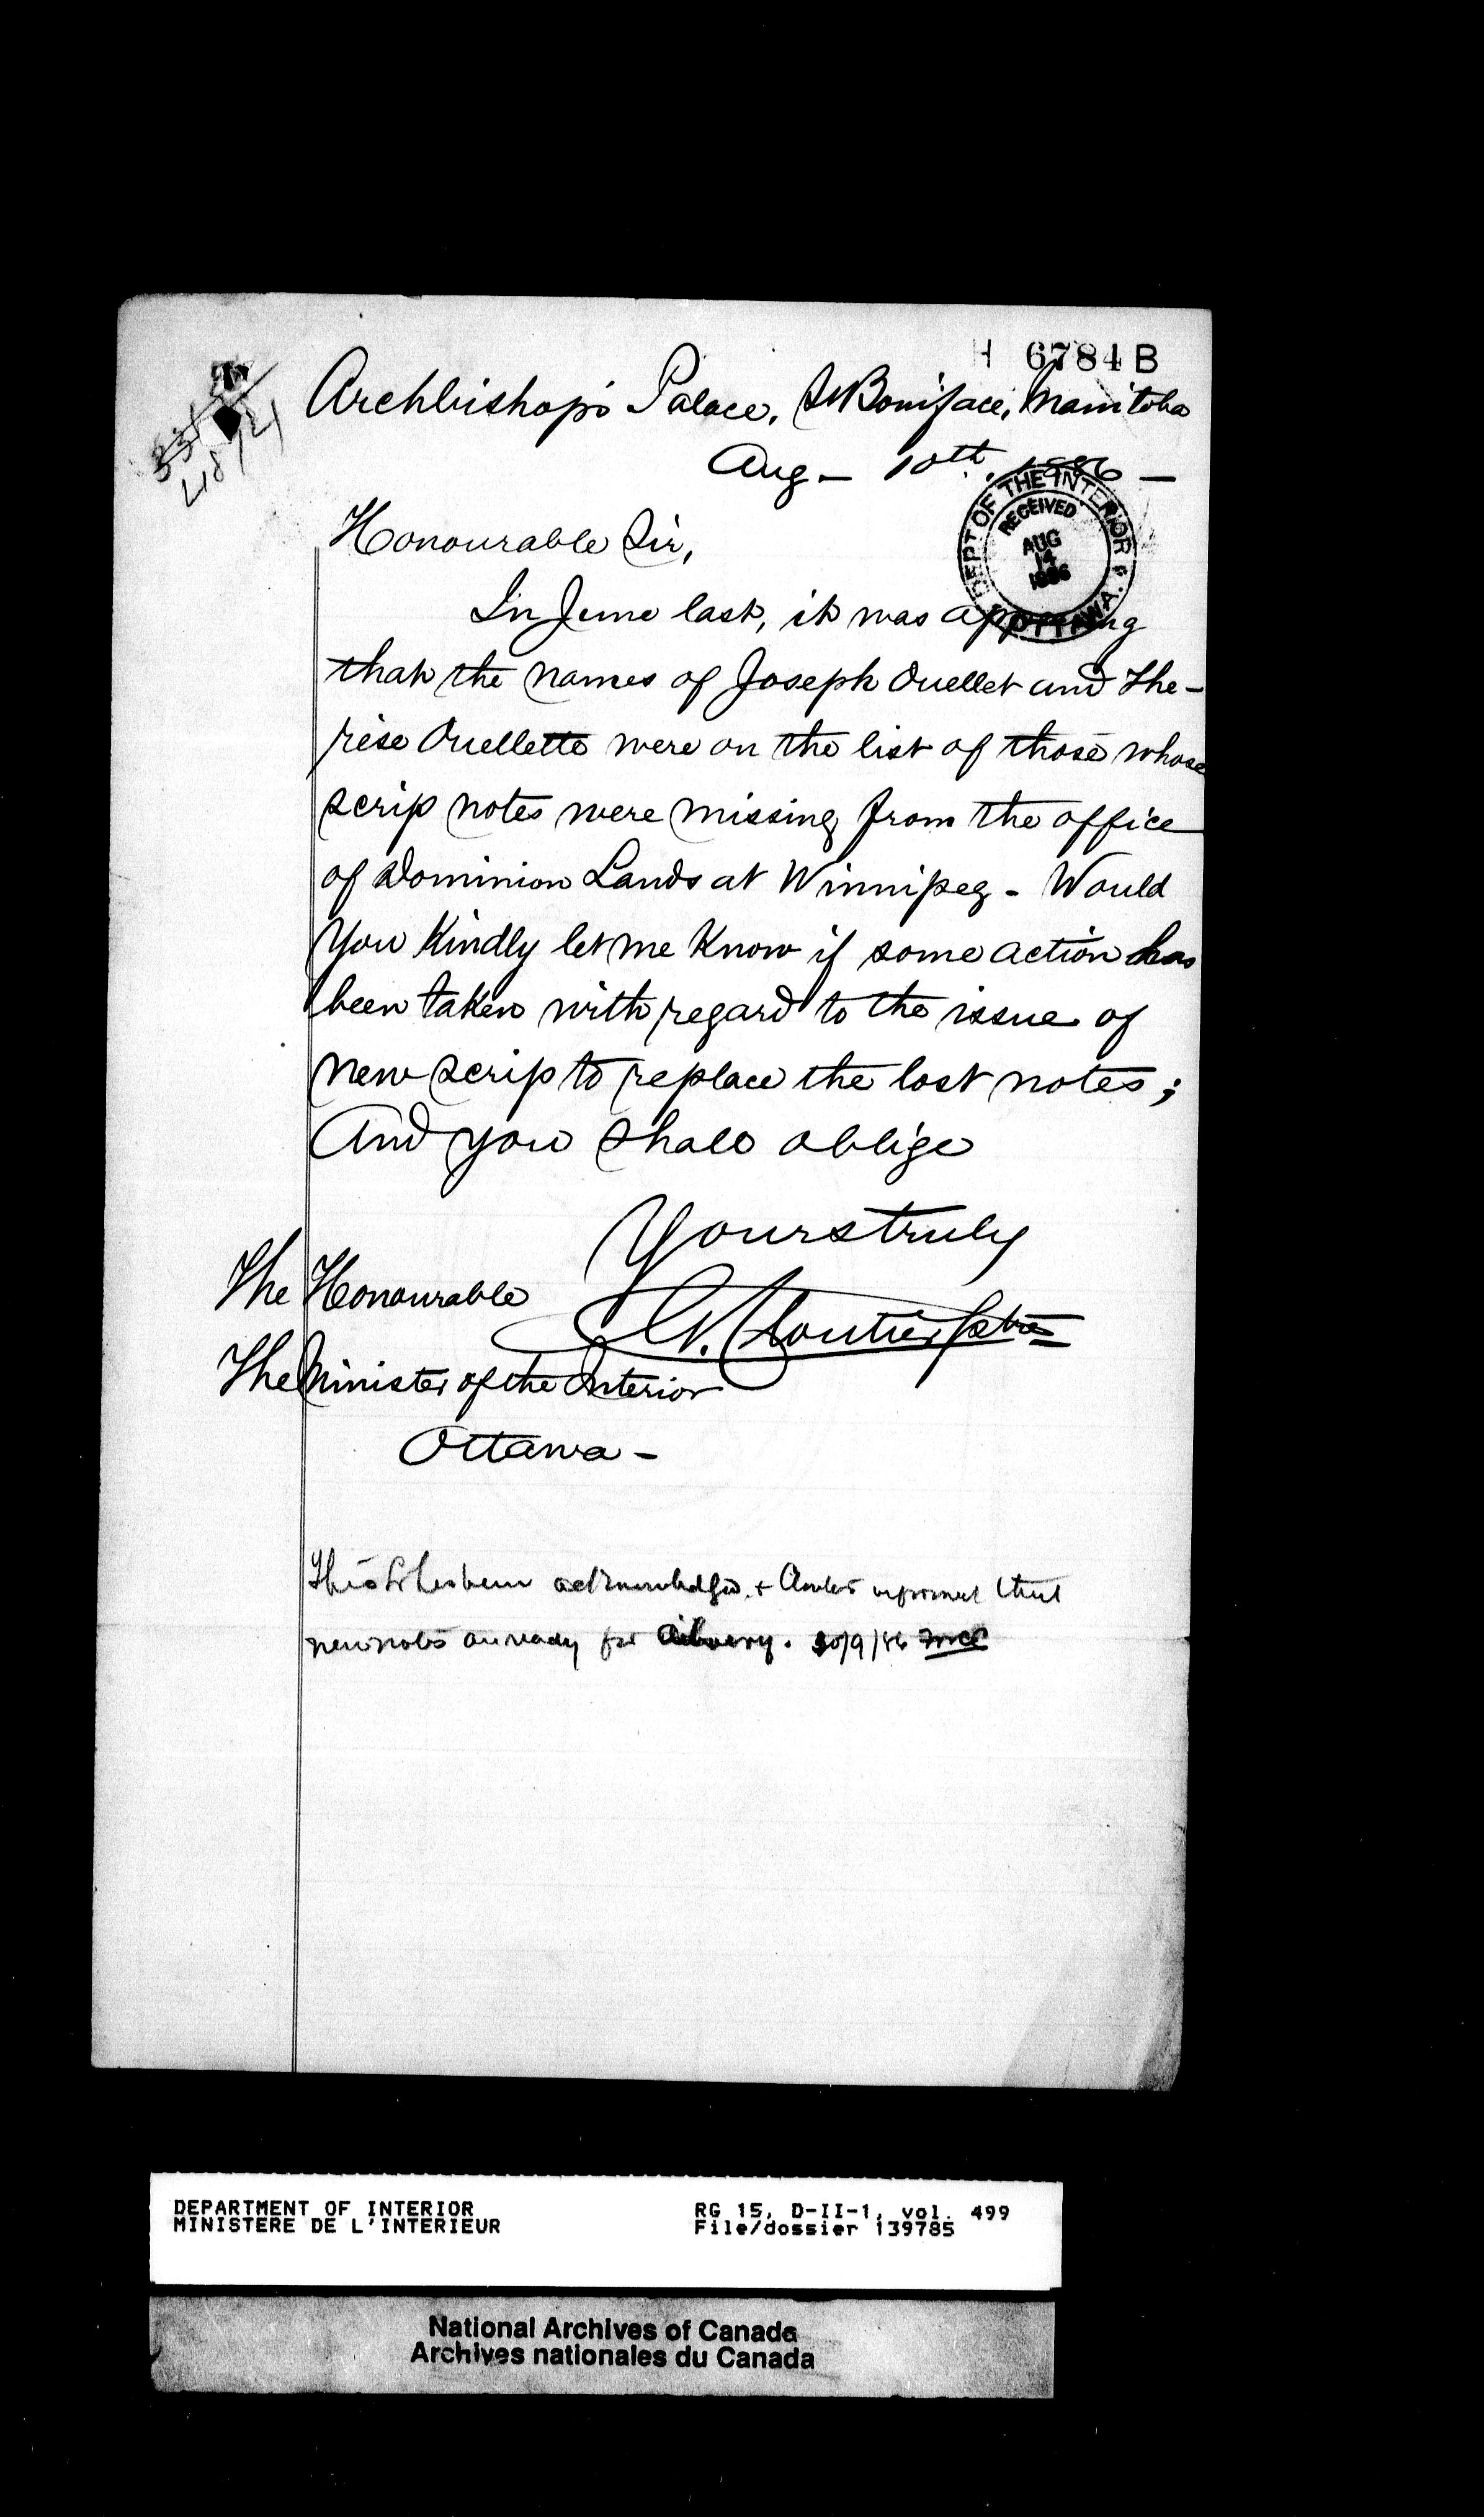 H 6784 B
Archbishop's Palace, St Boniface, Manitoba
Aug - 10th, 1886 -
DEPT OF THE INTERIOR
RECEIVED
AUG
14
1886
OTTAWA.
Honourable Sir,
In June last, it was appearing
that the names of Joseph Ouellet and The-
rèse Ouellette were on the list of those whose
scrip notes were missing from the office
of Dominion Lands at Winnipeg - Would
you Kindly let me Know if some action has
been taken with regard to the issue of
new scrip to replace the lost notes;
And you shall oblige
Yours truly
G. Cloutier ptre
The Honourable
The Minister of the Interior
Ottawa -
This has been acknowledged + informed that
new notes are ready for delivery. 30/9/86
DEPARTMENT OF INTERIOR
MINISTERE DE L'INTERIEUR
RG 15, D-II-1, vol. 499
File/dossier 139785
National Archives of Canada
Archives nationales du Canada